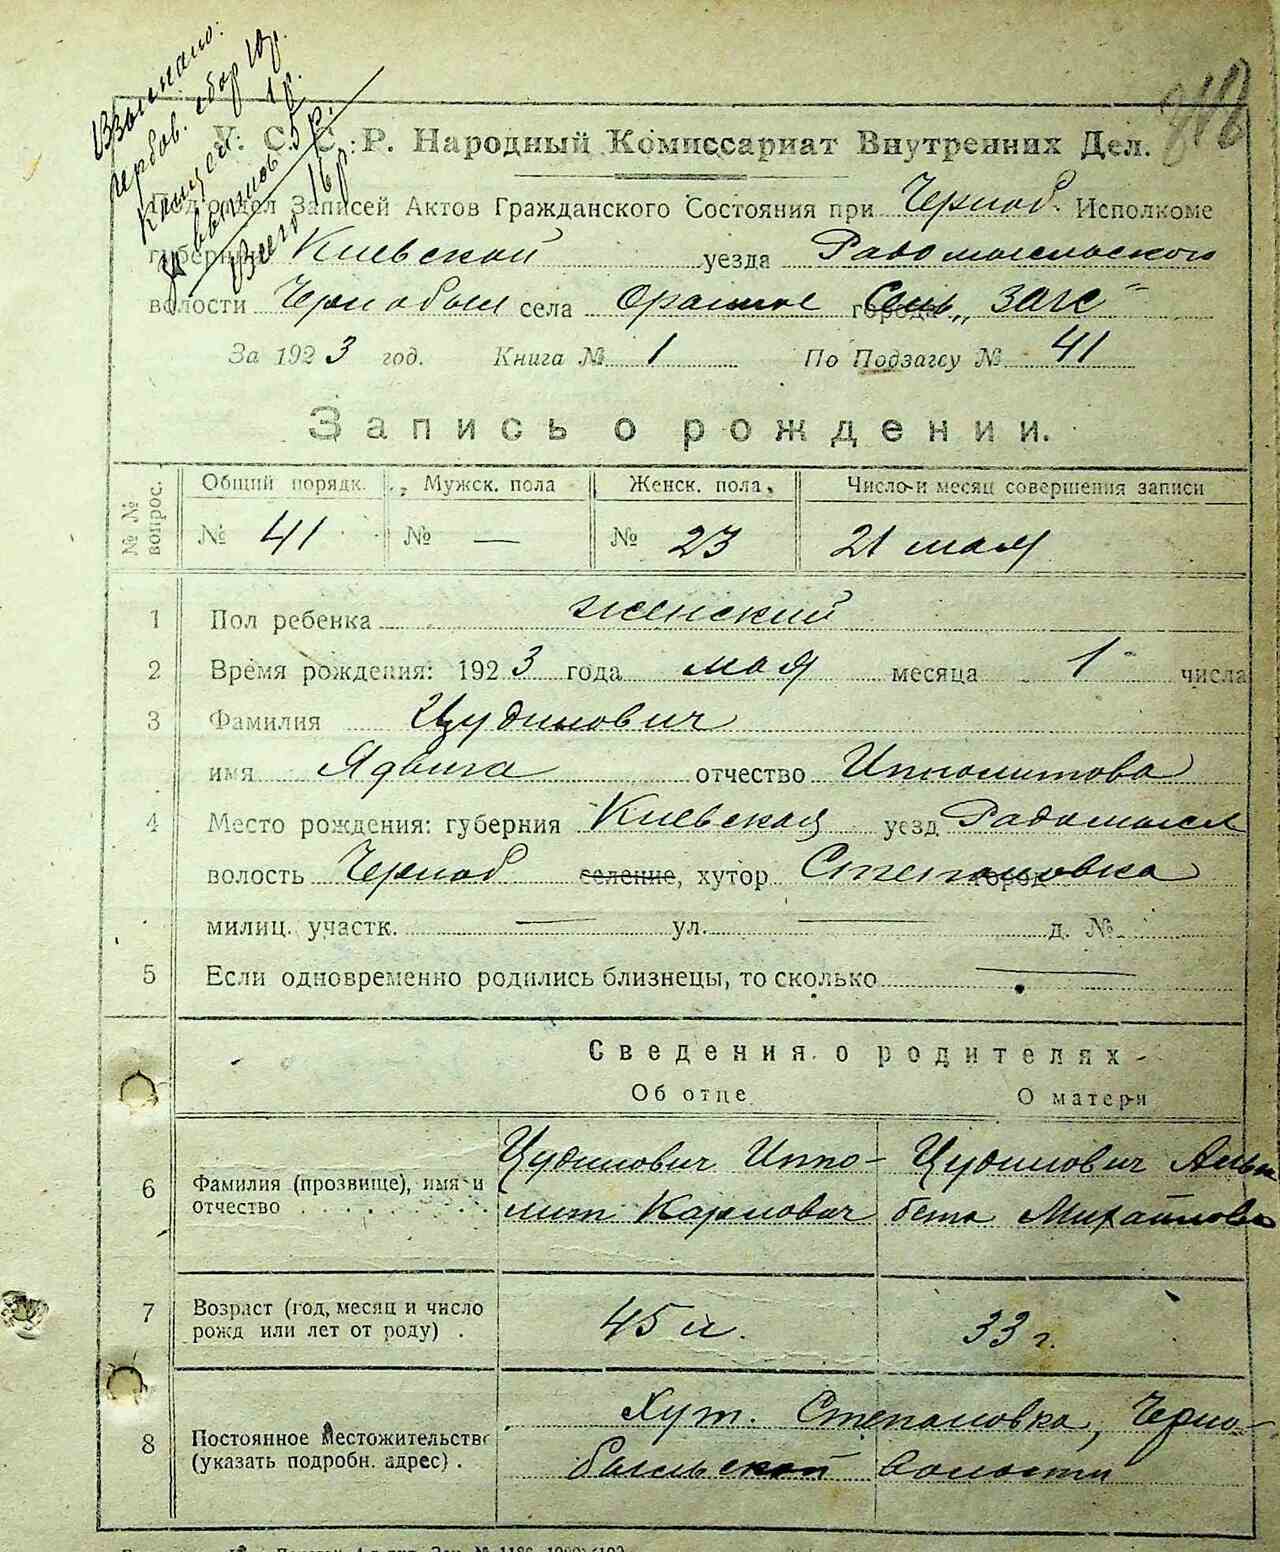 Взыскано:
гербов. сбор 10р.
Канцел. 1 р.
5 р.
Всего 16 р
У. С. С. Р. Народный Комиссариат Внутренних Дел.
Подотдел Записей Актов Гражданского Состояния при Черноб. Исполкоме
губернии Киевской уезда Радомысльского
волости Чернобыл села города „ЗАГС"
За 1923 год. Книга № 1 По Подзагсу № 41
Запись о рождении.
№ № вопрос. Общий порядк. Мужск. пола Женск. пола, Число и месяц совершения записи
№ 41 № — № 23 21 мая
1 Пол ребенка женский
2 Время рождения: 1923 года мая месяца 1 числа
3 Фамилия Цудинович
имя Ядвига отчество Ипполитова
4 Место рождения: губерния Киевская уезд Радомысл
волость Черноб селение, хутор город Степановка
милиц. участк. — ул. — д. №
5 Если одновременно родились близнецы, то сколько —
Сведения о родителях
Об отце О матери
6 Фамилия (прозвище), имя и отчество Цудинович Иппо-
лит Карлович
Цудинович Альж
бета Михайлова
7 Возраст (год, месяц и число
рожд или лет от роду) . 45 л. 33 г.
8 Постоянное местожительство
(указать подробн. адрес) . Хут. Степановка, Черно-
быльской волости